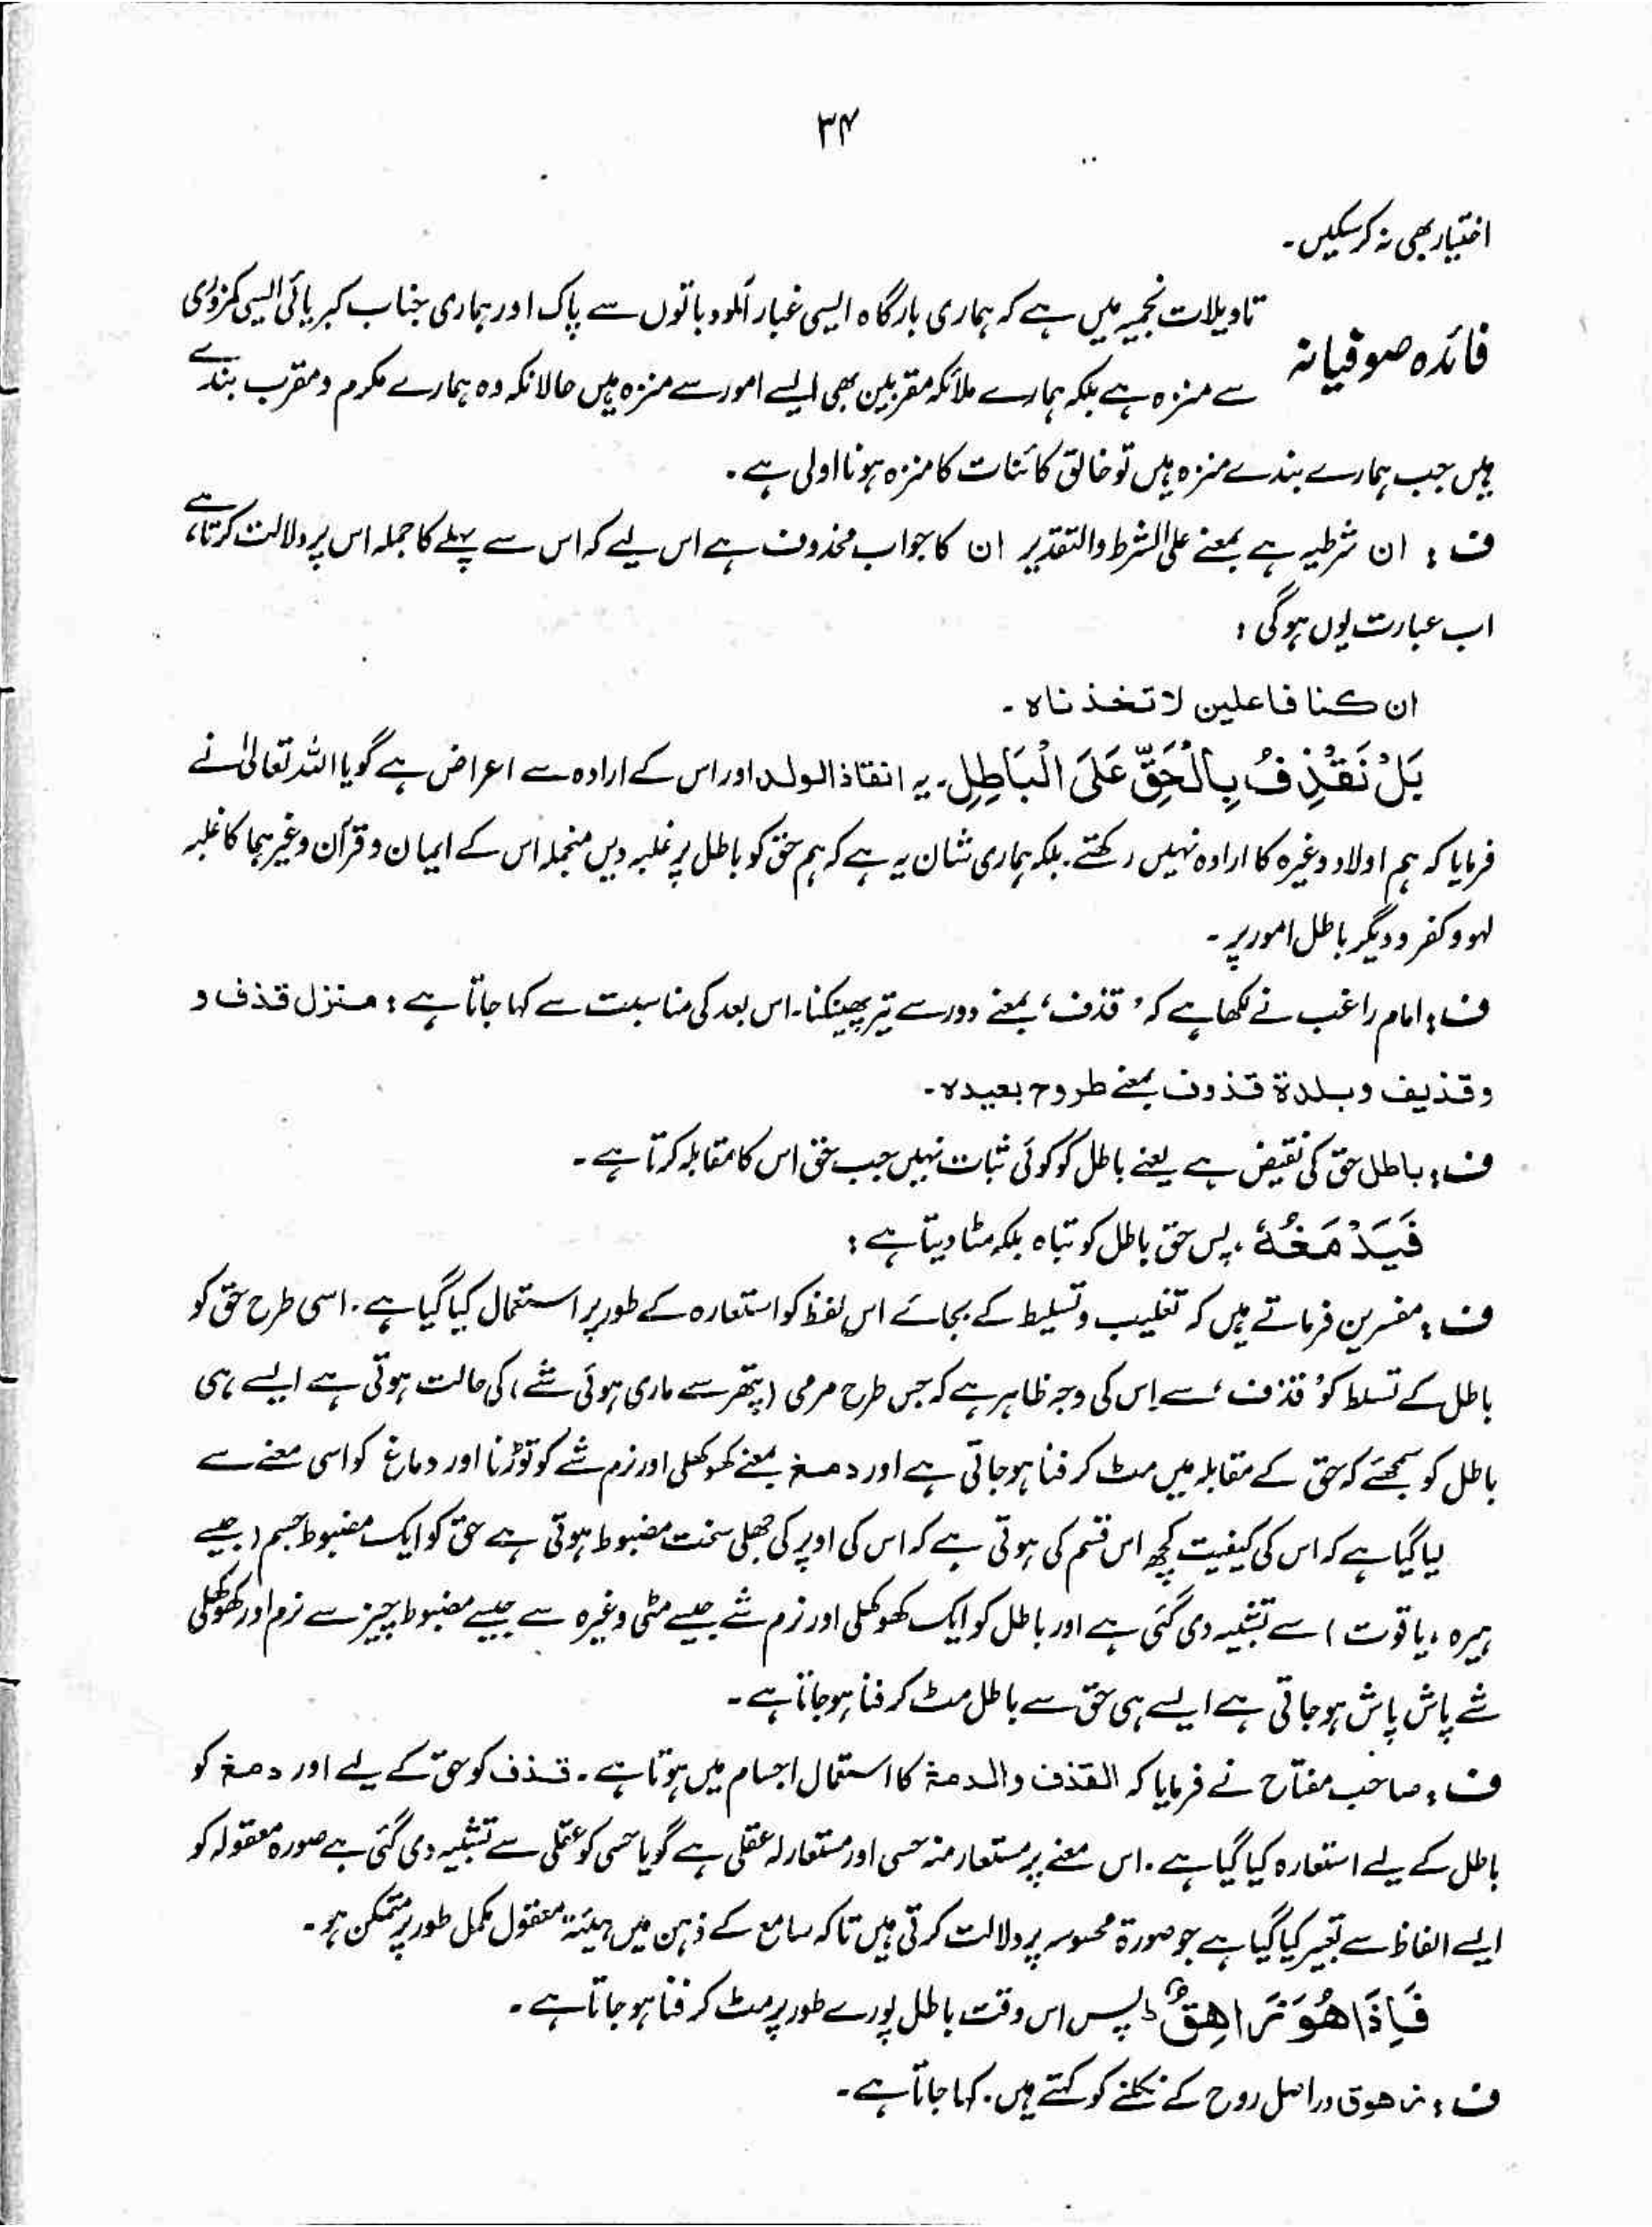 ۳۴
اختیار بھی نہ کرسکیں۔
فائدہ صوفیانہ
تاویلات نجمیہ میں ہے کہ ہماری بارگاہ ایسی غبار آلود باتوں سے پاک اور ہماری جناب کبریائی ایسی کمزوری
سے منزہ ہے بلکہ ہمارے ملائکہ مقربین بھی ایسے امور سے منزہ ہیں حالانکہ وہ ہمارے مکرم و مقرب بندے
ہیں جب ہمارے بندے منزہ ہیں تو خالق کائنات کا منزہ ہونا اولی ہے۔
ف : ان شرطیہ ہے بمعنے علی الشرط والتقدیر ان کا جواب محذوف ہے اس لیے کہ اس سے پہلے کا جملہ اس پر دلالت کرتا ہے،
اب عبارت یوں ہوگی :
ان کنا فاعلین لاتخذناہ ۔
بَلْ نَقْذِفُ بِالْحَقِّ عَلَی الْبَاطِلِ۔ یہ انقاذ الولد اور اس کے ارادہ سے اعراض ہے گویا اللہ تعالیٰ نے
فرمایا کہ ہم اولاد وغیرہ کا ارادہ نہیں رکھتے۔ بلکہ ہماری شان یہ ہے کہ ہم حق کو باطل پر غلبہ دیں منجملہ اس کے ایمان و قرآن وغیرہما کا غلبہ
لہو و کفر و دیگر باطل امور پر ۔
ف : امام راغب نے لکھا ہے کہ ' قذف ' بمعنے دور سے تیر پھینکنا۔ اس بعد کی مناسبت سے کہا جاتا ہے : منزل قذف و
وقذیف وبلدۃ قذوف بمعنے طروح بعیدہ۔
ف : باطل حق کی نقیض ہے یعنے باطل کو کوئی ثبات نہیں جب حق اس کا مقابلہ کرتا ہے ۔
فَیَدْمَغُہٗ ، پس حق باطل کو تباہ بلکہ مٹا دیتا ہے :
ف : مفسرین فرماتے ہیں کہ تغلیب و تسلیط کے بجائے اس لفظ کو استعارہ کے طور پر استعمال کیا گیا ہے۔ اسی طرح حق کو
باطل کے تسلط کو ' قذف ' سے اس کی وجہ ظاہر ہے کہ جس طرح مرمی (پتھر سے ماری ہوئی شے) کی حالت ہوتی ہے ایسے ہی
باطل کو سمجھئے کہ حق کے مقابلہ میں مٹ کر فنا ہو جاتی ہے اور دمغ بمعنے کھوکھلی اور نرم شے کو توڑنا اور دماغ کو اسی معنے سے
لیا گیا ہے کہ اس کی کیفیت کچھ اس قسم کی ہوتی ہے کہ اس کی اوپر کی جھلی سخت مضبوط ہوتی ہے حق کو ایک مضبوط جسم (جیسے
ہیرہ ، یاقوت) سے تشبیہ دی گئی ہے اور باطل کو ایک کھوکھلی اور نرم شے جیسے مٹی وغیرہ سے جیسے مضبوط چیز سے نرم اور کھوکھلی
شے پاش پاش ہو جاتی ہے ایسے ہی حق سے باطل مٹ کر فنا ہو جاتا ہے ۔
ف : صاحب مفتاح نے فرمایا کہ القذف والدمغ کا استعمال اجسام میں ہوتا ہے ۔ قذف کو حق کے لیے اور دمغ کو
باطل کے لیے استعارہ کیا گیا ہے ۔ اس معنے پر مستعار منہ حسی اور مستعار لہ عقلی ہے گویا حسی کو عقلی سے تشبیہ دی گئی ہے صورہ معقولہ کو
ایسے الفاظ سے تعبیر کیا گیا ہے جو صورۃ محسوسہ پر دلالت کرتی ہیں تاکہ سامع کے ذہن میں ہیئت معقول مکمل طور پر متمکن ہو ۔
فَاِذَا ھُوَ زَاھِقٌ ؕ پس اس وقت باطل پورے طور پر مٹ کر فنا ہو جاتا ہے ۔
ف : زھوق دراصل روح کے نکلنے کو کہتے ہیں۔ کہا جاتا ہے ۔